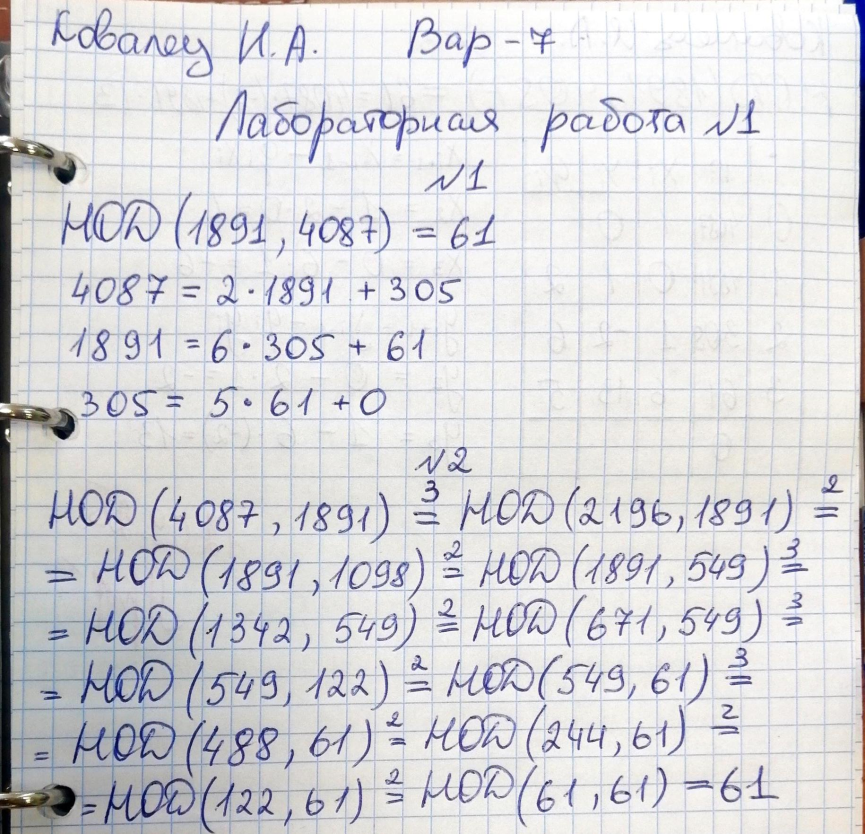 Ковалец И.А. Вар-7
Лабораторная работа №1
№1
НОД (1891, 4087) = 61
4087 = 2·1891 + 305
1891 = 6·305 + 61
305 = 5·61 + 0
№2
НОД (4087, 1891) =³ НОД (2196, 1891) =²
= НОД (1891, 1098) =² НОД (1891, 549) =³
= НОД (1342, 549) =² НОД (671, 549) =³
= НОД (549, 122) =² НОД (549, 61) =³
= НОД (488, 61) =² НОД (244, 61) =²
= НОД (122, 61) =² НОД (61, 61) = 61